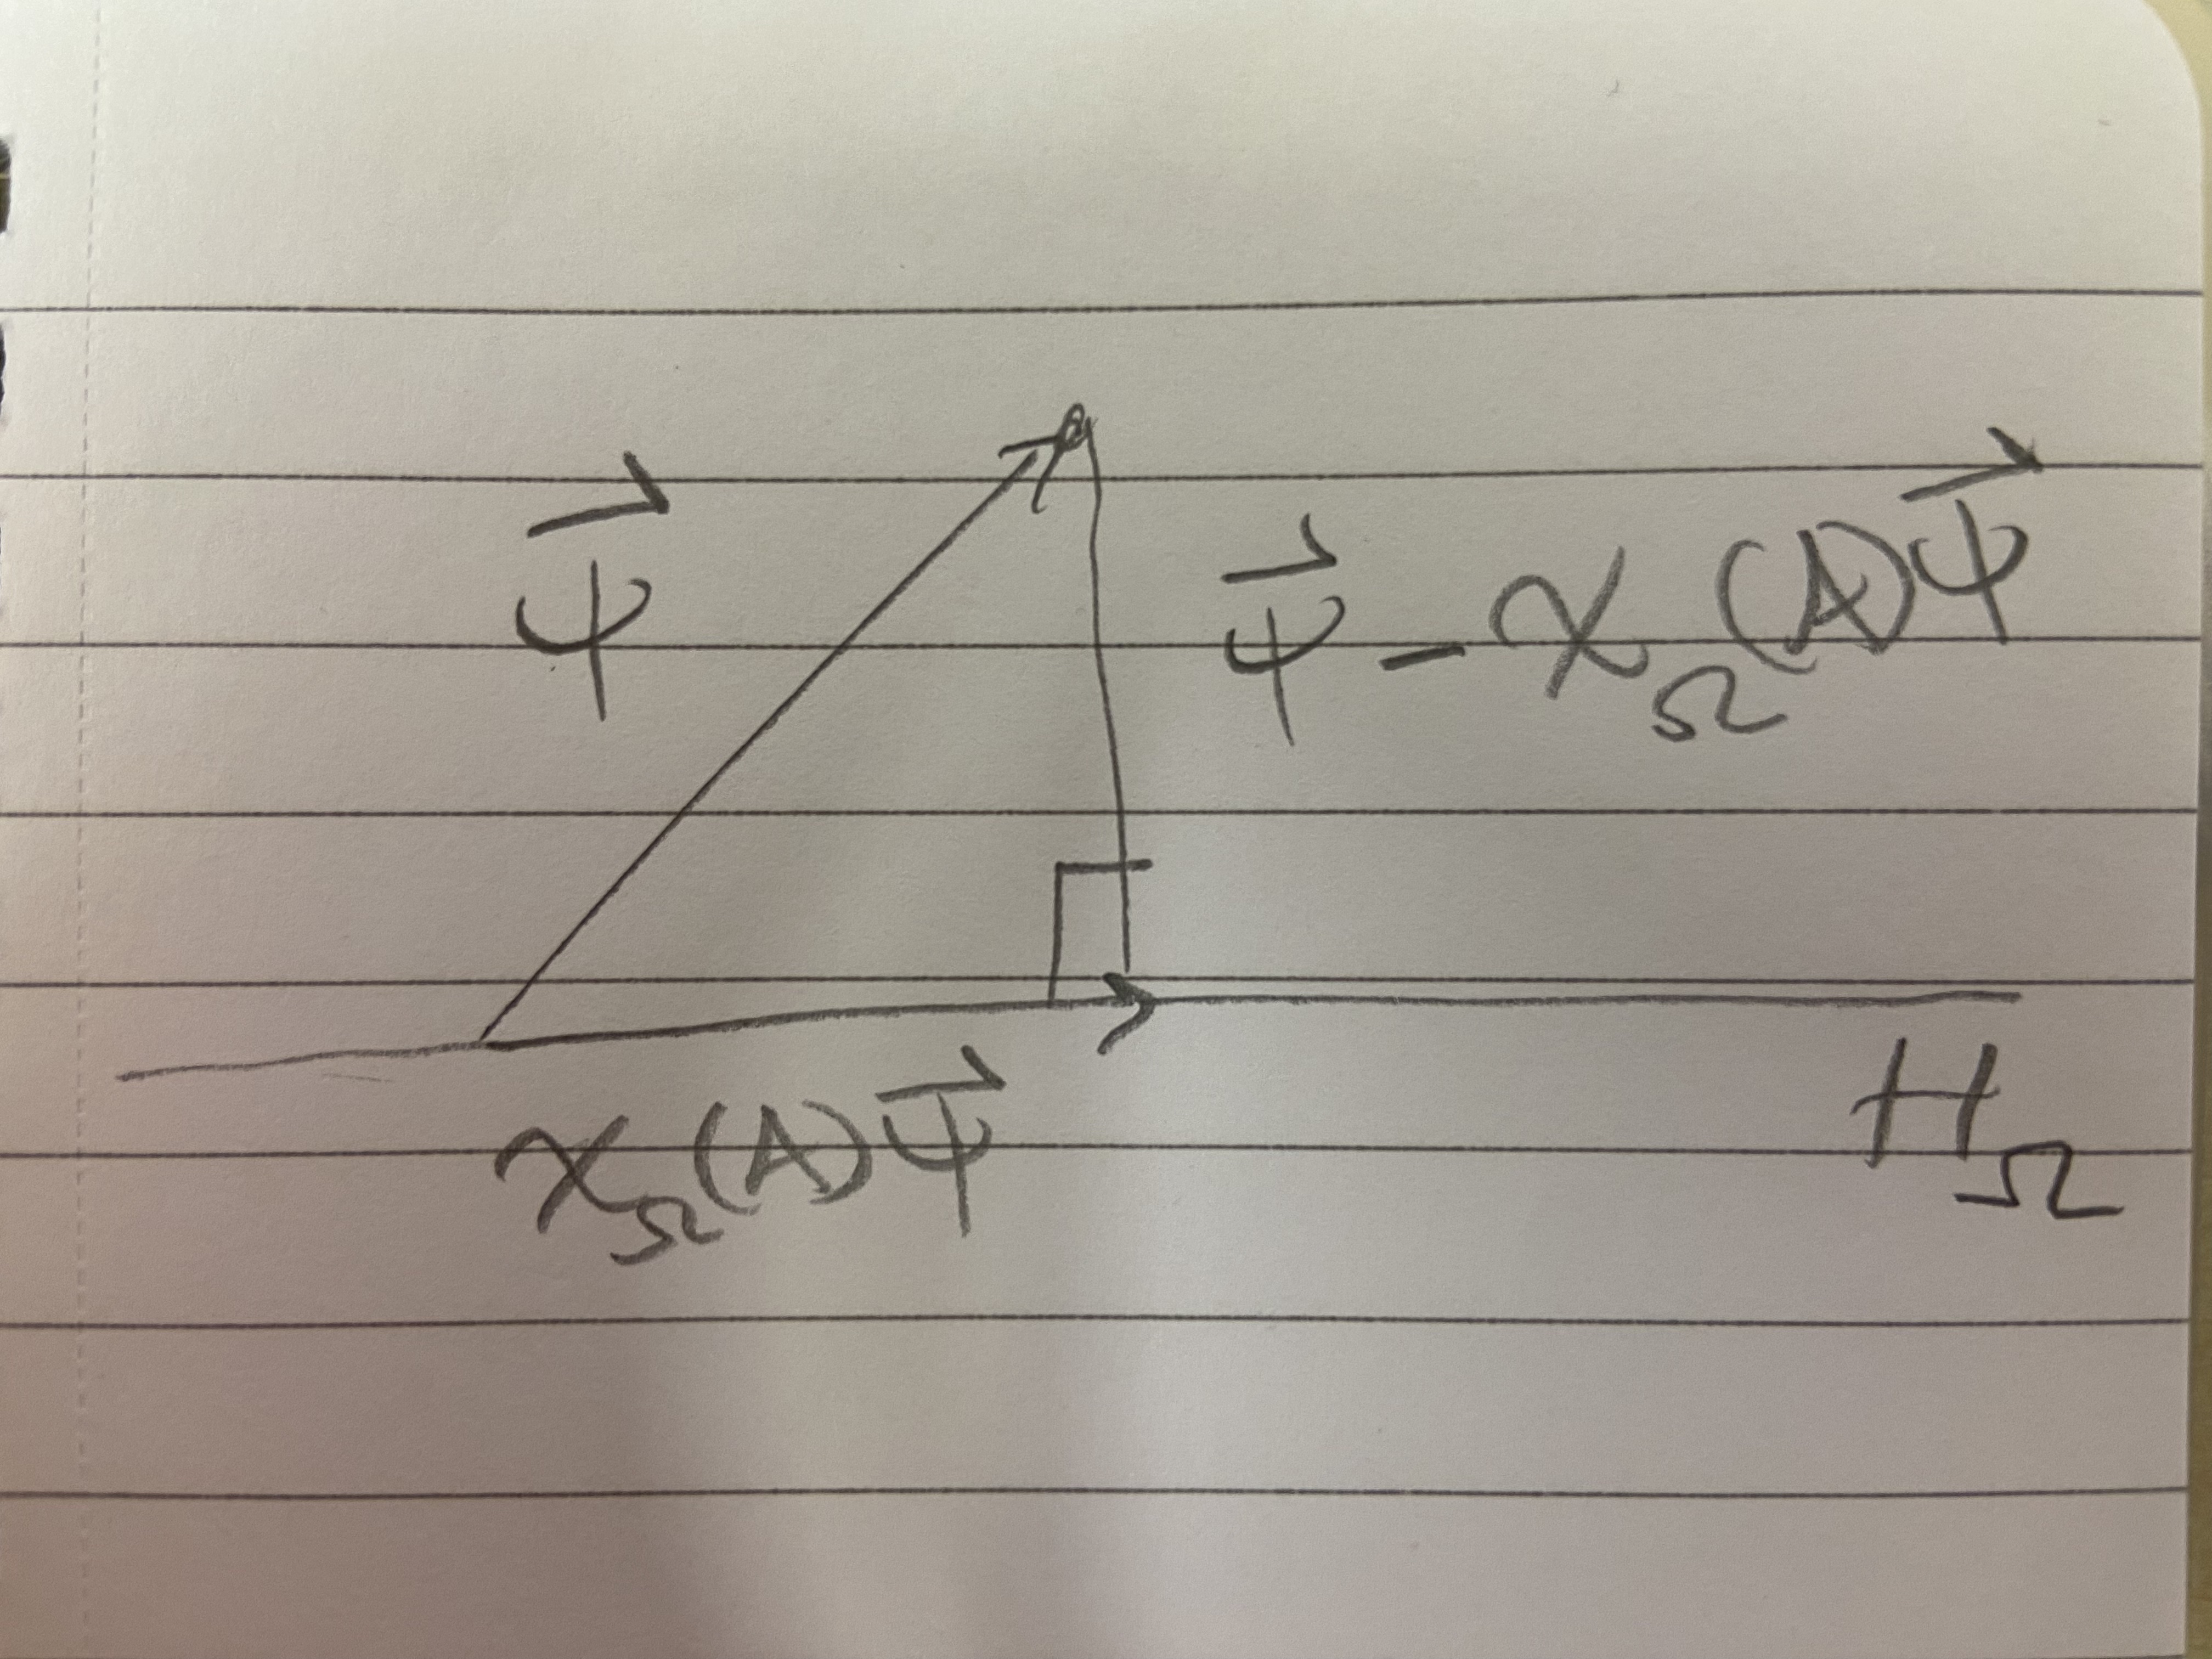 ψ⃗
ψ⃗ - χ_Ω(A)ψ⃗
χ_Ω(A)ψ⃗
H_Ω